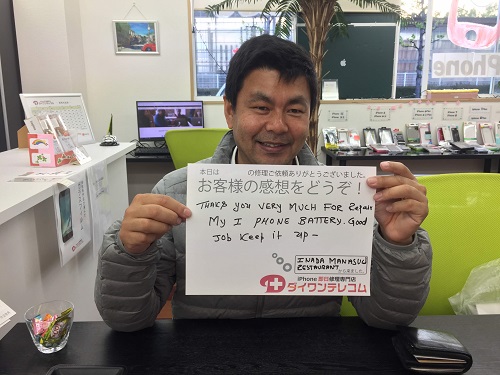 iPhone
本日は
の修理に依頼ありがとうございました。
お客様の感想をどうぞ！
THANKS YOU VERY MUCH FOR Repair
My I PHONE BATTERY. Good
Job Keep it up -
INADA MANASULU
RESTAURANT
から来ました。
iPhone 即日修理専門店
ダイワンテレコム